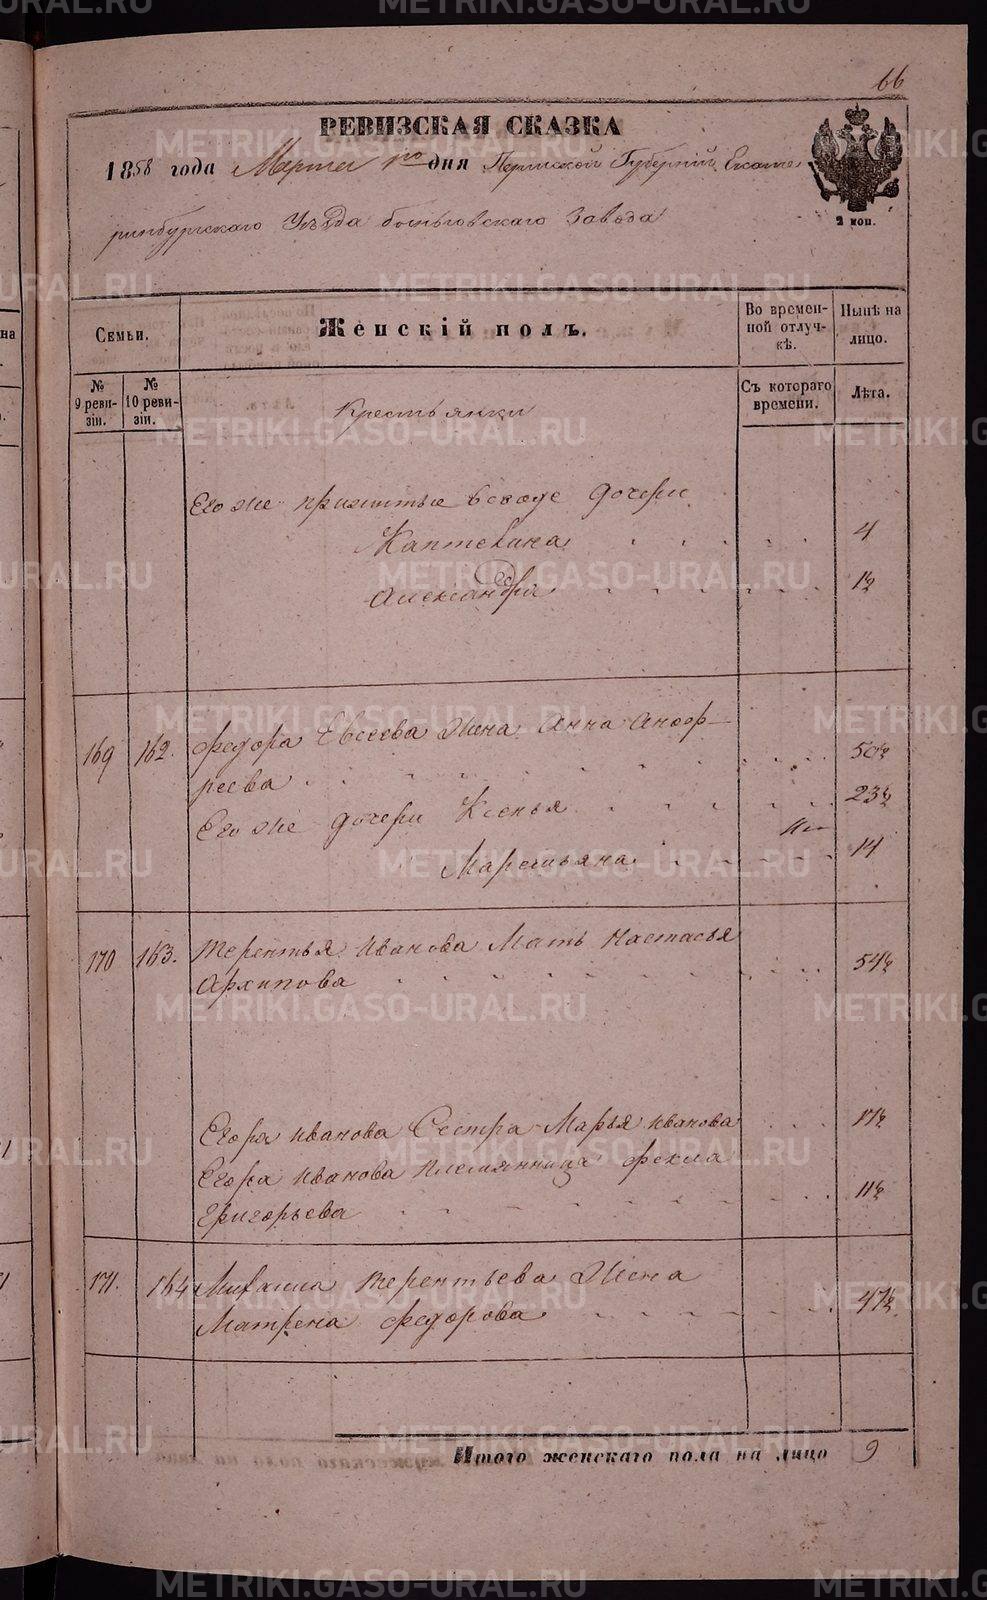 66
РЕВИЗСКАЯ СКАЗКА
1858 года Марта 1го дня Пермской Губернiи Екате
ринбургскаго Уѣзда Быньговскаго Завода
2 коп.
Семьи. Женскiй полъ. Во времен-ной отлуч-кѣ. Нынѣ на лицо.
№ 9 реви-зiи. № 10 реви-зiи. Съ котораго времени. Лѣта.
Крестьянки
Его же прижитые вовсе дочери
Каптелина 4
Александра 1½
169 162. Федора Евсеева Жена Анна Аноф-
реева 50½
Его же дочери Ксенья 23½
Маремьяна 14
170 163. Терентья Иванова Мать Настасья
Архипова 54½
Егора Иванова Сестра Марья Иванова 17½
Егора Иванова племянница Фекла
Григорьева 11½
171. 164 Михаила Терентьева Жена
Матрена Федорова 47½
Итого женскаго пола на лицо 9
METRIKI.GASO-URAL.RU